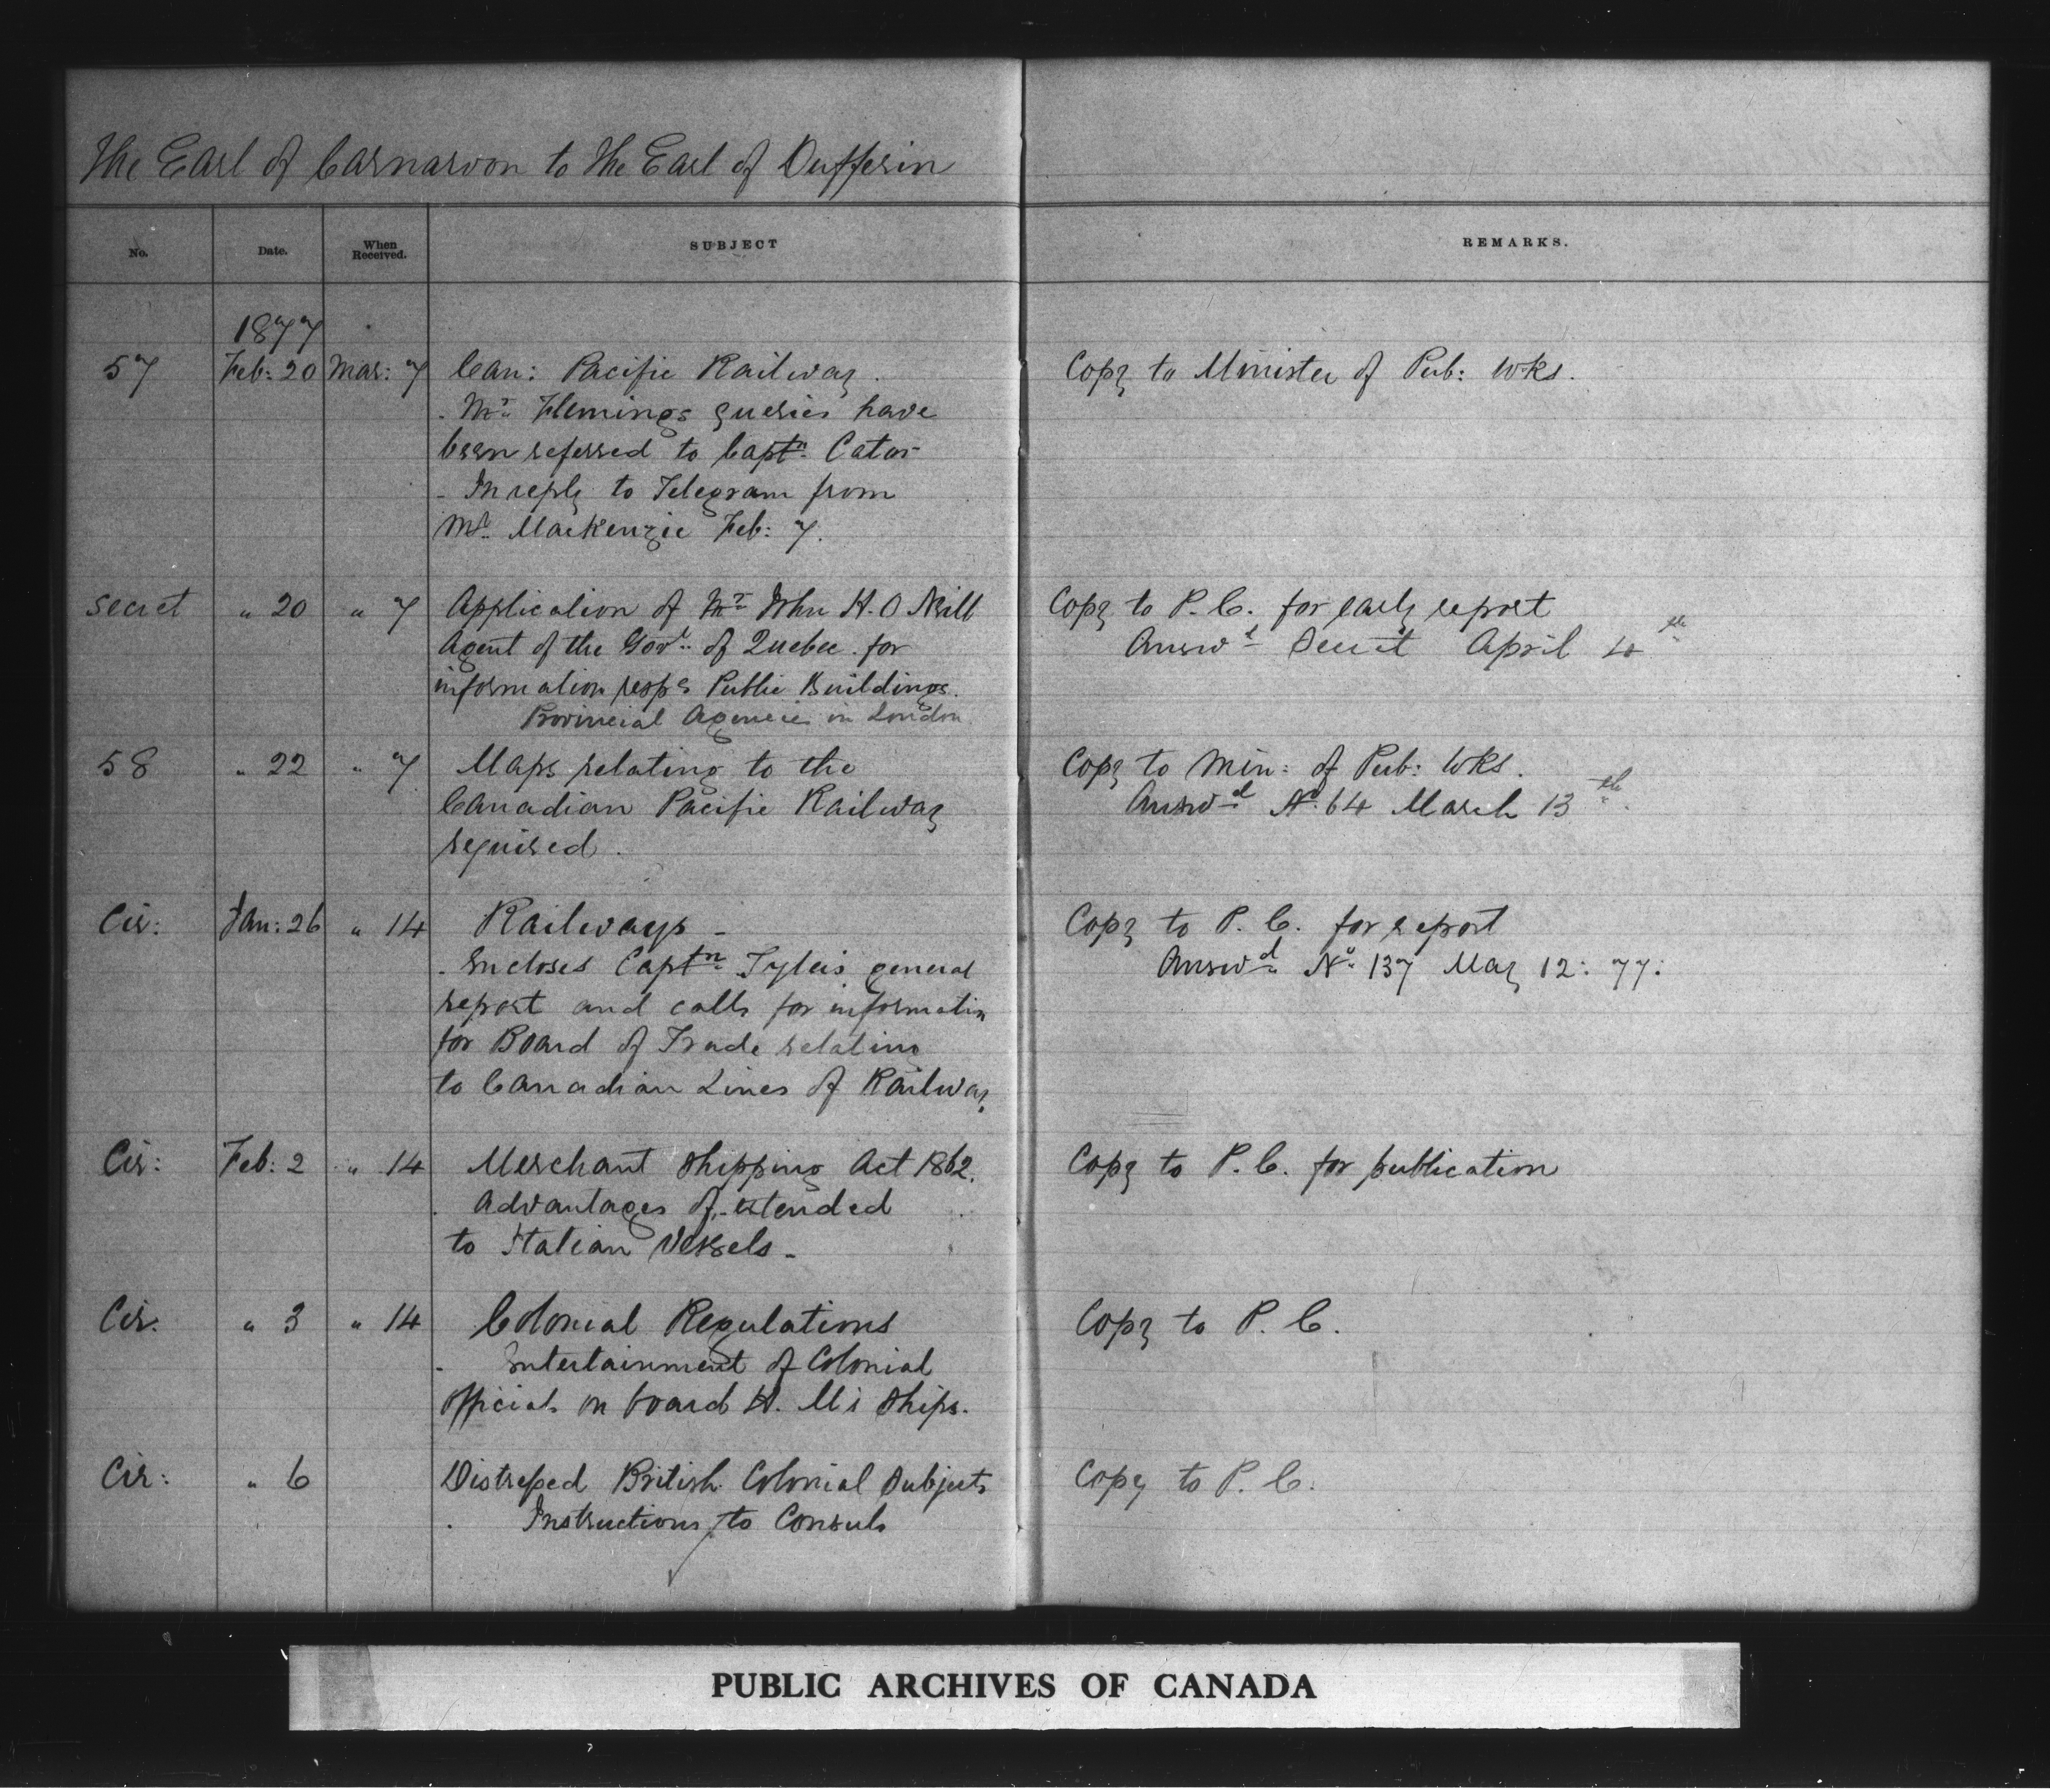 The Earl of Carnarvon to the Earl of Dufferin
No. Date. When Received. SUBJECT REMARKS.
1877
57 Feb: 20 Mar: 7 Can: Pacific Railway. Copy to Minister of Pub: Wks.
. Mr. Flemings queries have
been referred to Captn. Cator
- In reply to Telegram from
Mr. Mackenzie Feb: 7.
Secret " 20 " 7 Application of Mr John H. O Neill Copy to P. C. for early report
Agent of the Govt. of Quebec. for Answd Secret April 10th
information respg Public Buildings.
Provincial Agencies in London
58 " 22 " 7 Maps relating to the Copy to Min: of Pub: Wks.
Canadian Pacific Railway Answd No. 64 March 13th.
required.
Cir: Jan: 26 " 14 Railways - Copy to P. C. for report
. Encloses Captn. Tyler's general Answd. No. 137 May 12: 77:
report and calls for informatin
for Board of Trade relating
to Canadian Lines of Railway.
Cir: Feb: 2 " 14 Merchant Shipping Act 1862. Copy to P. C. for publication
. Advantages of. extended
to Italian Vessels -
Cir. " 3 " 14 Colonial Regulations Copy to P. C.
. Entertainment of Colonial
officials on board H. M's Ships.
Cir: " 6 Distressed British Colonial Subjects Copy to P. C.
. Instructions to Consuls
PUBLIC ARCHIVES OF CANADA